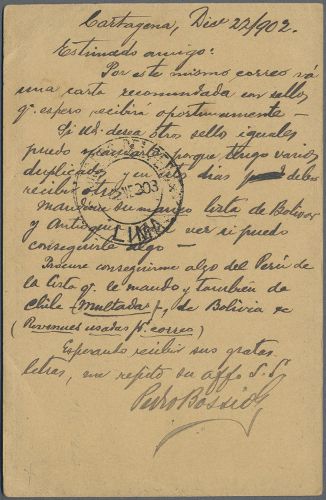 Cartagena, Dice 22/902.
Estimado amigo:
Por este mismo correo vá
una carta recomendada con sellos
q. espero recibirá oportunamente —
Si Ud. desea otros sellos iguales
puedo mandarle porque tengo varios
duplicados y en dias debo
recibir otros
Mandeme su manco lista de Bolivar
y Antioquia ver si puedo
conseguirle algo —
LIMA
Procure conseguirme algo del Perú de
la lista q. le mando y tambien de
Chile (Multadas), de Bolivia &
(Revenues usadas pr. correo)
Esperando recibir sus gratas
letras, me repito su affo S. S.
Pedro Bossio G